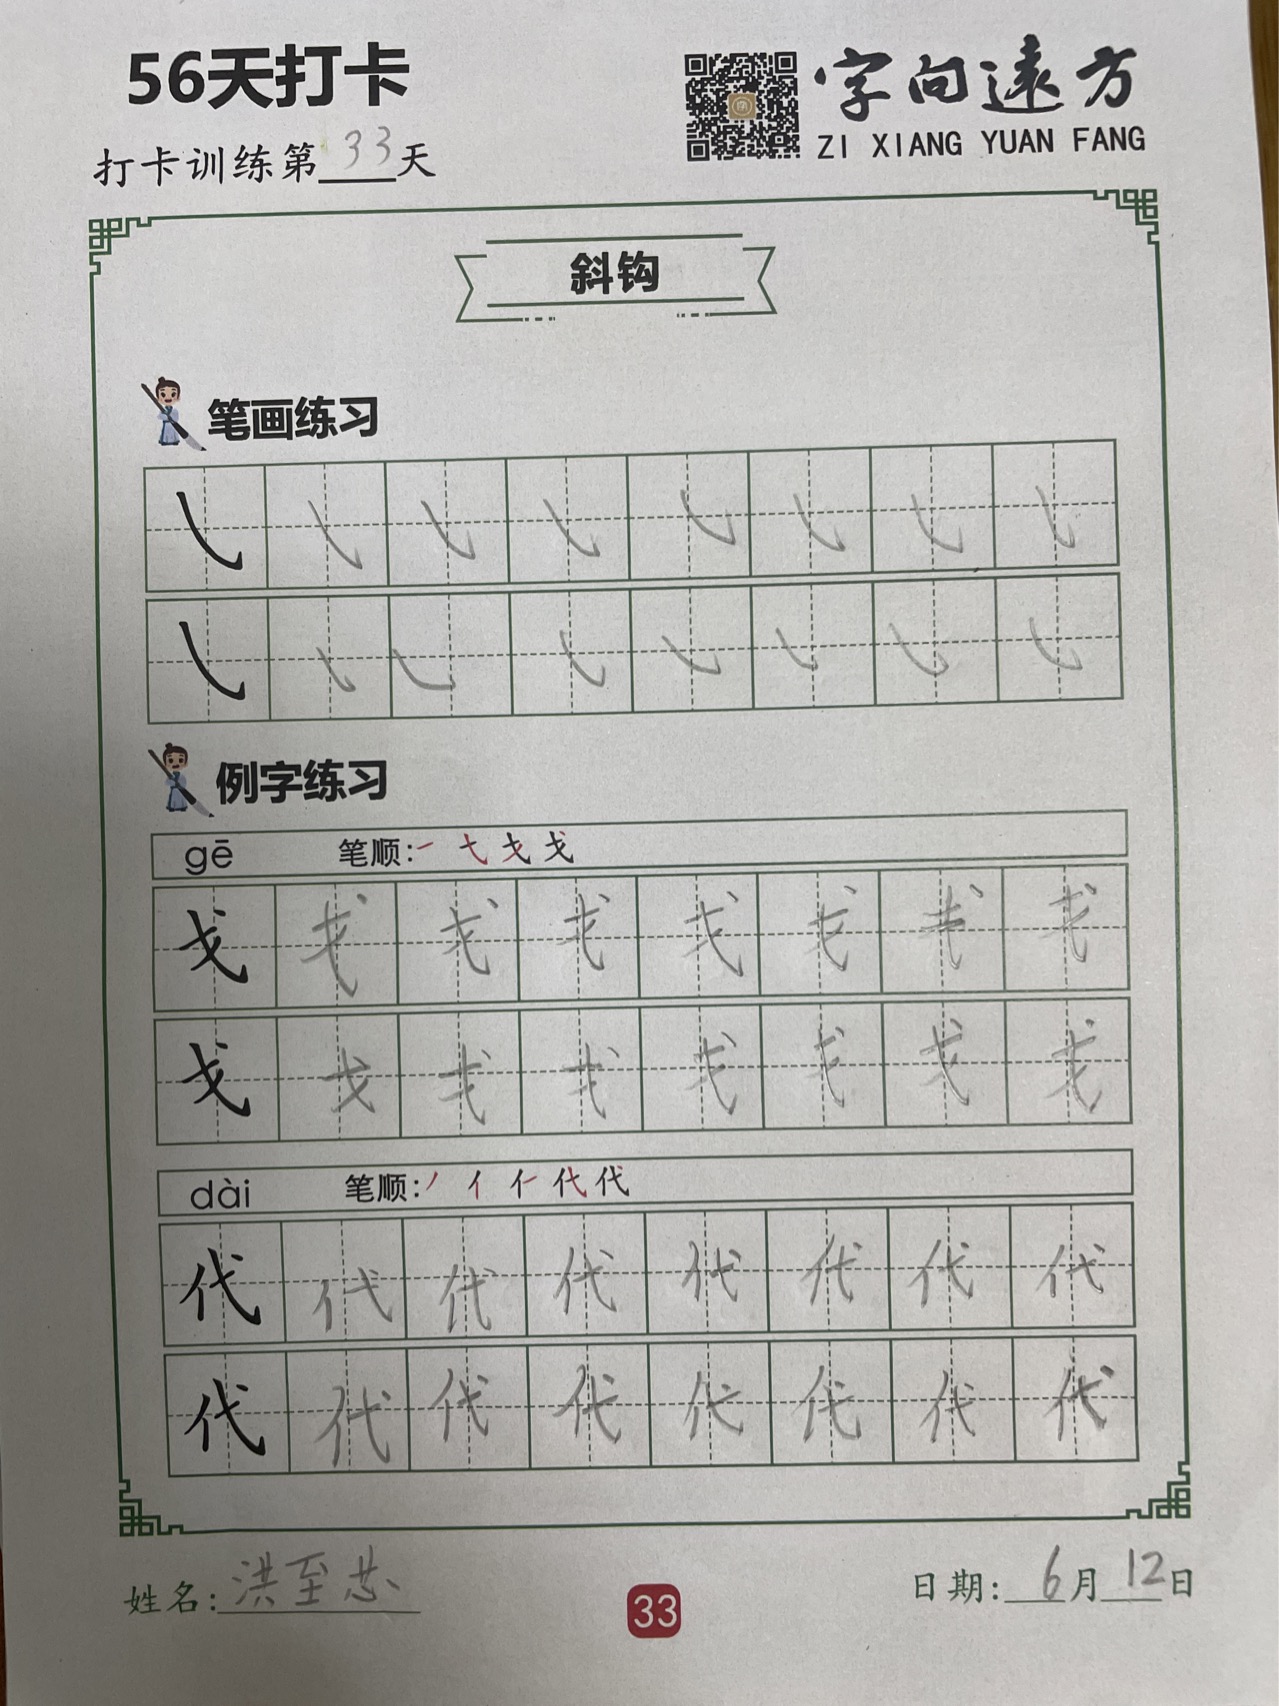 56天打卡
字向遠方
ZI XIANG YUAN FANG
打卡训练第33天
斜钩
笔画练习
㇂ ㇂ ㇂ ㇂ ㇂ ㇂ ㇂ ㇂
㇂ ㇂ ㇂ ㇂ ㇂ ㇂ ㇂ ㇂
例字练习
gē 笔顺: 一 弋 戈 戈
戈 戈 戈 戈 戈 戈 戈 戈
戈 戈 戈 戈 戈 戈 戈 戈
dài 笔顺: 丿 亻 仁 代 代
代 代 代 代 代 代 代 代
代 代 代 代 代 代 代 代
姓名: 洪至芯
33
日期: 6月12日